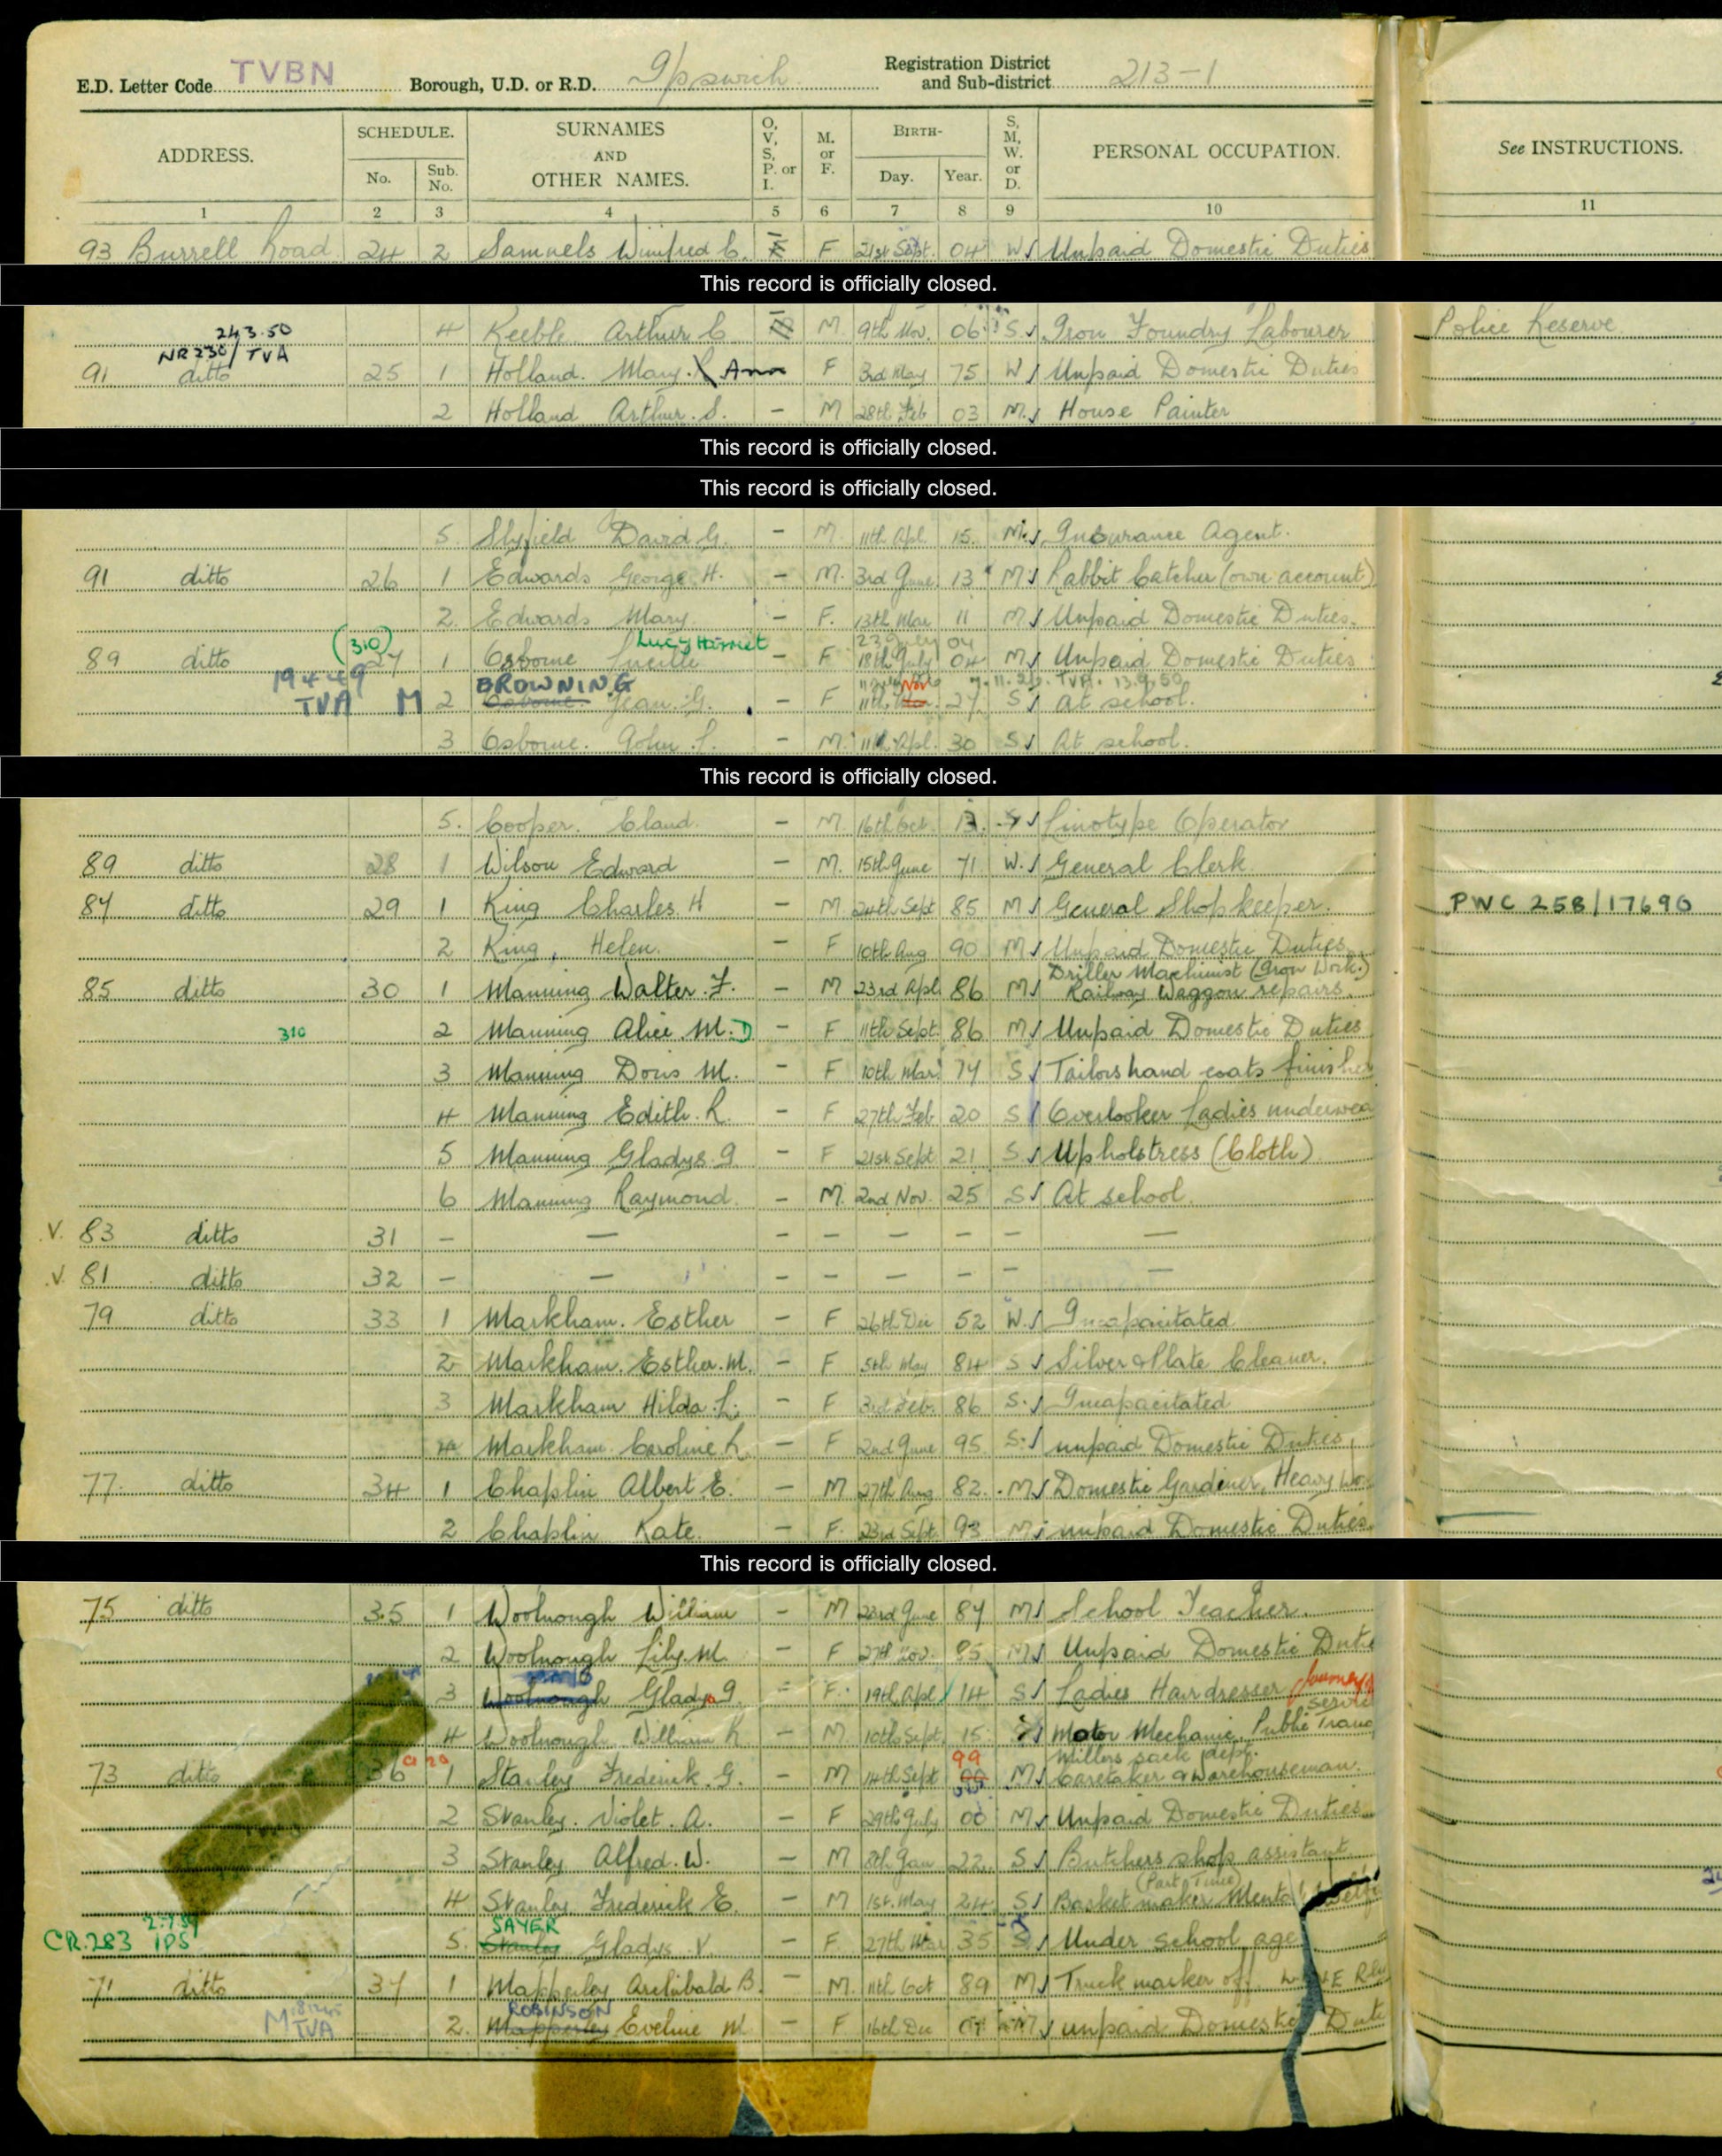 E.D. Letter Code TVBN Borough, U.D. or R.D. Ipswich Registration District and Sub-district 213-1
ADDRESS. SCHEDULE. No. Sub. No. SURNAMES AND OTHER NAMES. O, V, S, P. or I. M. or F. BIRTH- Day. Year. S, M, W. or D. PERSONAL OCCUPATION. See INSTRUCTIONS.
1 2 3 4 5 6 7 8 9 10 11
93 Burrell Road 24 2 Samuels Winifred C. F 21st Sept. 04 W Unpaid Domestic Duties
This record is officially closed.
4 Keeble Arthur C M. 9th Nov. 06 S Iron Foundry Labourer Police Reserve
24.3.50
NR230/TVA
91 ditto 25 1 Holland. Mary. Ann F 3rd May 75 W Unpaid Domestic Duties
2 Holland Arthur. S. - M 28th Feb 03 M. House Painter
This record is officially closed.
This record is officially closed.
5. Slyfield David G. - M. 11th Apl. 15. M. Insurance Agent.
91 ditto 26 1 Edwards George H. - M. 3rd June 13 M Rabbit Catcher (own account)
2. Edwards Mary - F. 13th Mar 11 M Unpaid Domestic Duties.
(310) Lucy Harriet 23 July 04
89 ditto 27 1 Osborne Lucille - F 18th July 04 M Unpaid Domestic Duties
19449 BROWNING Nov 7.11.26. TVA. 13.9.50
TVA M 2 Osborne Jean. G. F 11th 27 S At school.
3 Osborne. John. L. - M. 11th Apl. 30 S At school.
This record is officially closed.
5. Cooper. Claud. - M. 16th Oct. 13. S Linotype Operator
89 ditto 28 1 Wilson Edward - M. 15th June 71 W. General Clerk
87 ditto 29 1 King Charles. H - M. 24th Sept 85 M General Shopkeeper. PWC 258/17690
2 King, Helen. - F 10th Aug 90 M Unpaid Domestic Duties
Driller Machinist (Iron Work.)
85 ditto 30 1 Manning Walter. F. - M 23rd Apl 86 M Railway Waggon repairs.
310 2 Manning Alice. M. D - F 11th Sept. 86 M Unpaid Domestic Duties
3 Manning Doris M. - F 10th Mar 14 S Tailors hand coats finisher
4 Manning Edith. R. - F 27th Feb 20 S Overlooker Ladies underwea
5 Manning Gladys. G - F 21st Sept 21 S Upholstress (Cloth)
6 Manning Raymond. - M. 2nd Nov. 25 S At school.
V. 83 ditto 31 - - - - - - - -
V. 81 ditto 32 - - - - - - - -
79 ditto 33 1 Markham. Esther - F 26th Dec 52 W. Incapacitated
2 Markham. Esther. M. - F 5th May 84 S Silver & Plate Cleaner.
3 Markham Hilda. L. - F 3rd Feb. 86 S. Incapacitated
4 Markham. Caroline. L - F 2nd June 95 S. unpaid Domestic Duties
77. ditto 34 1 Chaplin Albert. E. - M 27th Aug 82. M Domestic Gardener, Heavy Wo
2 Chaplin Kate. - F. 23rd Sept. 93 M unpaid Domestic Duties.
This record is officially closed.
75 ditto 35 1 Woolnough William - M 23rd June 87 M School Teacher.
2 Woolnough Lily. M. - F 27th Nov. 85 M Unpaid Domestic Dutie
3 Woolnough Gladys G. - F. 19th Apl 14 S Ladies Hairdresser
Service
4 Woolnough William R - M. 10th Sept. 15 Motor Mechanic, Public Trans
99 Millers sack dept.
73 ditto 36 1 Stanley Frederick. G. - M 14th Sept 00 M Caretaker & Warehouseman.
2 Stanley. Violet. A. - F 29th July 00 M Unpaid Domestic Duties
3 Stanley Alfred. W. - M 8th Jan 22. S Butchers shop assistant
(Part Time)
4 Stanley Frederick E. - M 1st May 24 S Basket maker
2.7.54 SAYER
CR.283 IPS 5. Stanley Gladys. V. - F. 27th Mar 35 S Under school age
71 ditto 37 1 Mapperley Archibald B. - M. 11th Oct 89 M Truck marker off
M TVA ROBINSON
2. Mapperley Eveline M - F 16th Dec M unpaid Domestic Dutie